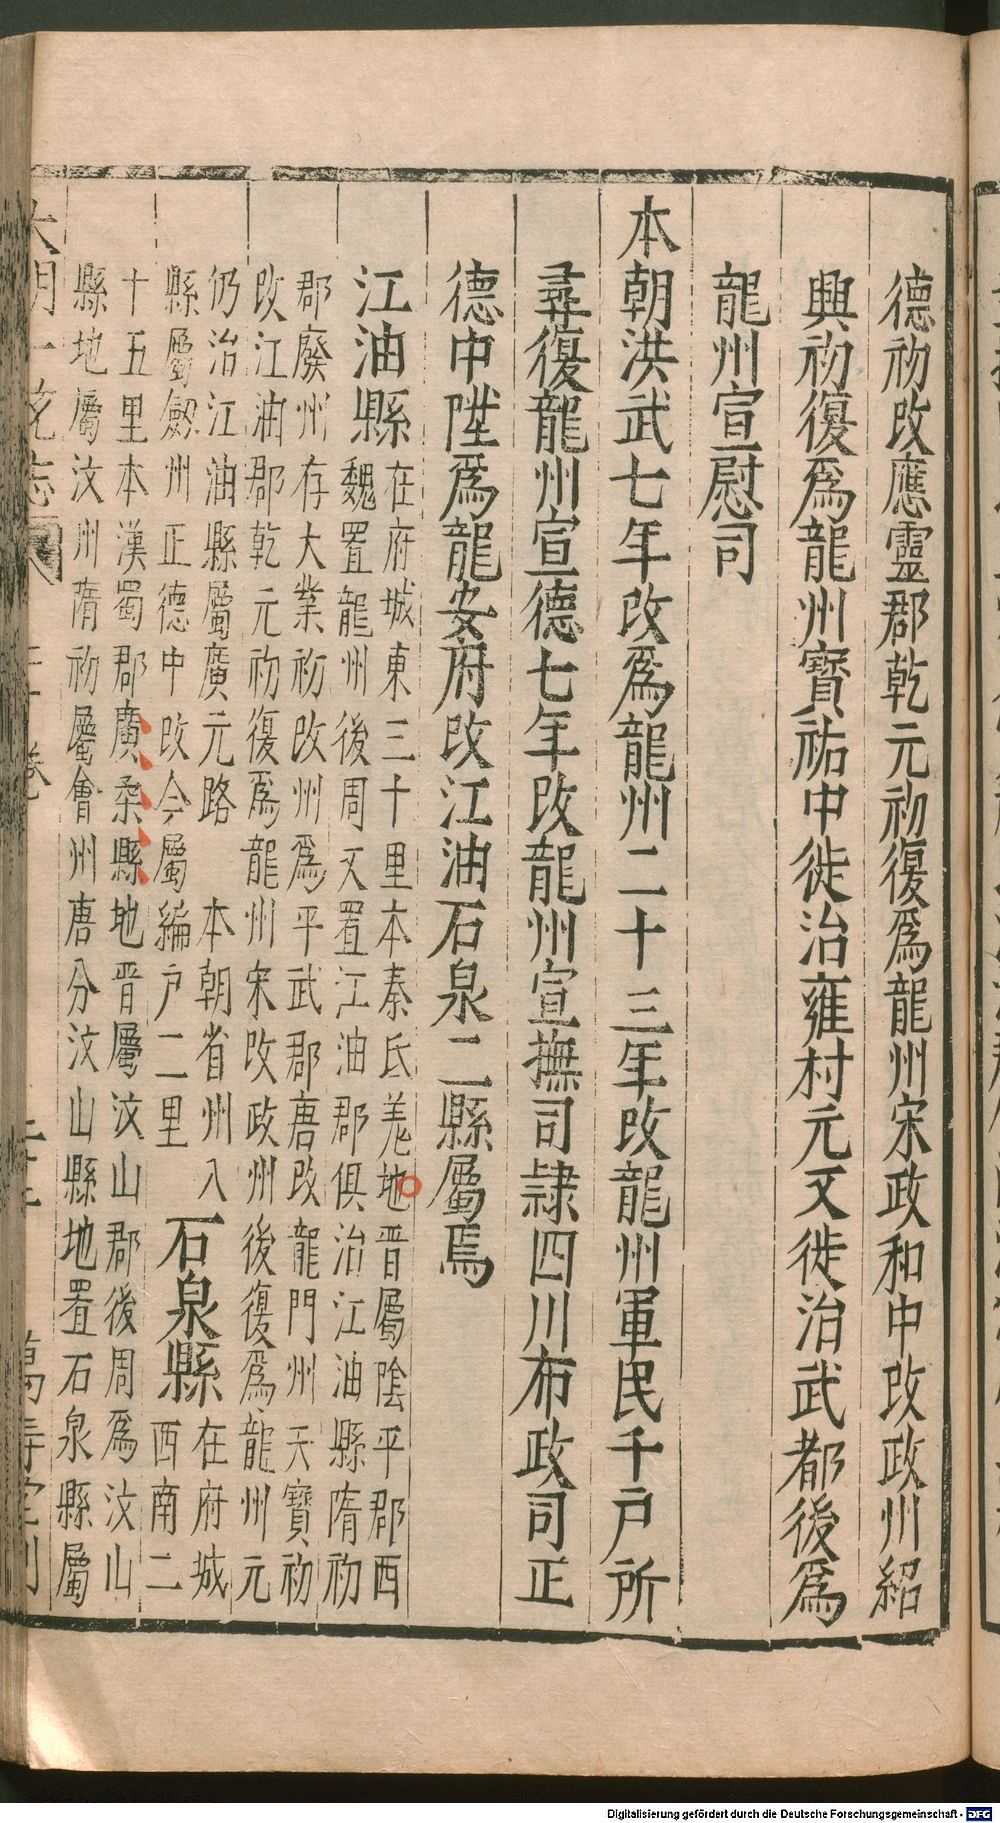 德初改應靈郡乾元初復爲龍州宋政和中改政州紹
興初復爲龍州寶祐中徙治雍村元又徙治武都後爲
龍州宣慰司
本朝洪武七年改爲龍州二十三年改龍州軍民千戶所
尋復龍州宣德七年改龍州宣撫司隷四川布政司正
德中陞爲龍安府改江油石泉二縣屬焉
江油縣
在府城東三十里本秦氐羌地晉屬陰平郡西
魏置龍州後周又置江油郡俱治江油縣隋初
郡廢州存大業初改州爲平武郡唐改龍門州天寶初
改江油郡乾元初復爲龍州宋改政州後復爲龍州元
仍治江油縣屬廣元路 本朝省州入
縣屬劔州正德中改今屬編戶二里
石泉縣
在府城
西南二
十五里本漢蜀郡廣柔縣地晉屬汶山郡後周爲汶山
縣地屬汶州隋初屬會州唐分汶山縣地置石泉縣屬
大明一统志
萬壽堂刊
Digitalisierung gefördert durch die Deutsche Forschungsgemeinschaft - DFG